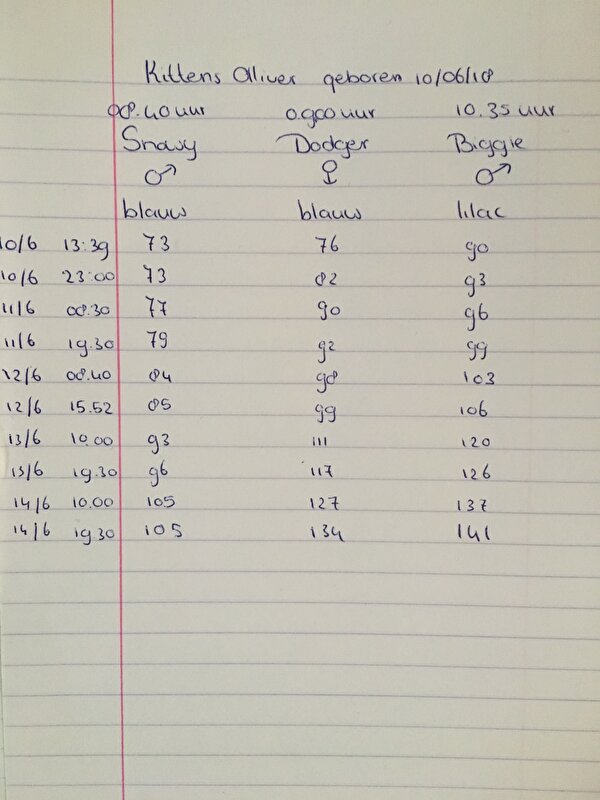 Kittens Olliver geboren 10/06/18
08.40 uur 0.900 uur 10.35 uur
Snavy Dodger Biggie
♂ ♀ ♂
blauw blauw lilac
10/6 13:39 73 76 90
10/6 23:00 73 82 93
11/6 08.30 77 90 96
11/6 19.30 79 92 99
12/6 08.40 84 98 103
12/6 15.52 85 99 106
13/6 10.00 93 111 120
13/6 19.30 96 117 126
14/6 10.00 105 127 137
14/6 19.30 105 134 141